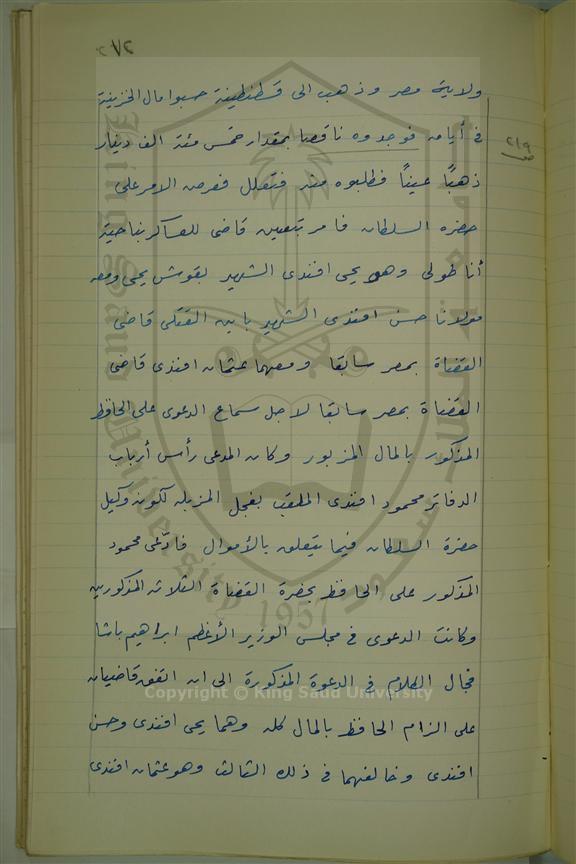 ٢٧٢
ولاية مصر وذهب الى قسطنطينة حسبوا مال الخزينة
في أيامه فوجدوه ناقصا بمقدار خمس مئة الف دينار
٢١٩
ص
ذهبًا عينًا فطلبوه منه فتعلل فعرض الامر على
حضره السلطان فامر بتعين قاضي للعساكر بناحية
أناطولي وهو يحيى افندى الشهير بقوش يحيى ومعه
مولانا حسن افندى الشهير بابن القتلى قاضى
القضاة بمصر سابقا ومعهما عثمان افندى قاضى
القضاة بمصر سابقا لاجل سماع الدعوى على الحافظ
المذكور بالمال المزبور وكان المدعى رأس أرباب
الدفاتر محمود افندى الملقب بفجل المزبله لكونه وكيل
حضرة السلطان فيما يتعلق بالأموال فادّعى محمود
المذكور على الحافظ بحضرة القضاة الثلاثه المذكورين
وكانت الدعوى في مجلس الوزير الأعظم ابراهيم باشا
فجال الكلام في الدعوة المذكورة الى ان اتفق قاضيان
على الزام الحافظ بالمال كله وهما يحيى افندى وحسن
افندى وخالفهما في ذلك الثالث وهو عثمان افندى
Copyright © King Saud University
King Saud University
1957